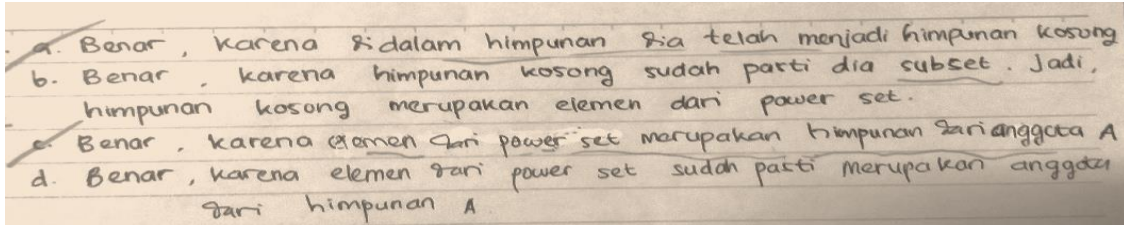 a. Benar, karena didalam himpunan dia telah menjadi himpunan kosong
b. Benar, karena himpunan kosong sudah pasti dia subset. Jadi,
himpunan kosong merupakan elemen dari power set.
c. Benar, karena elemen dari power set merupakan himpunan dari anggota A
d. Benar, karena elemen dari power set sudah pasti merupakan anggota
dari himpunan A